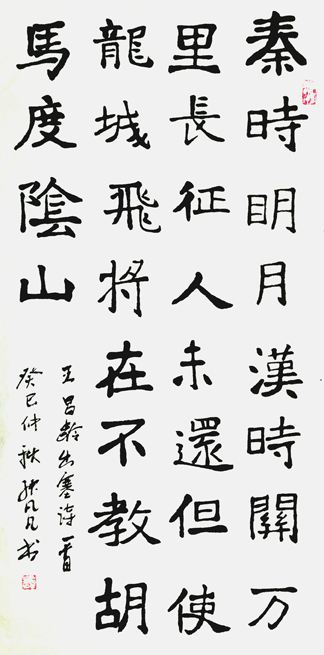 秦時明月漢時關万
里長征人未還但使
龍城飛將在不教胡
馬度陰山
王昌齡出塞诗一首
癸巳仲秋凡凡书